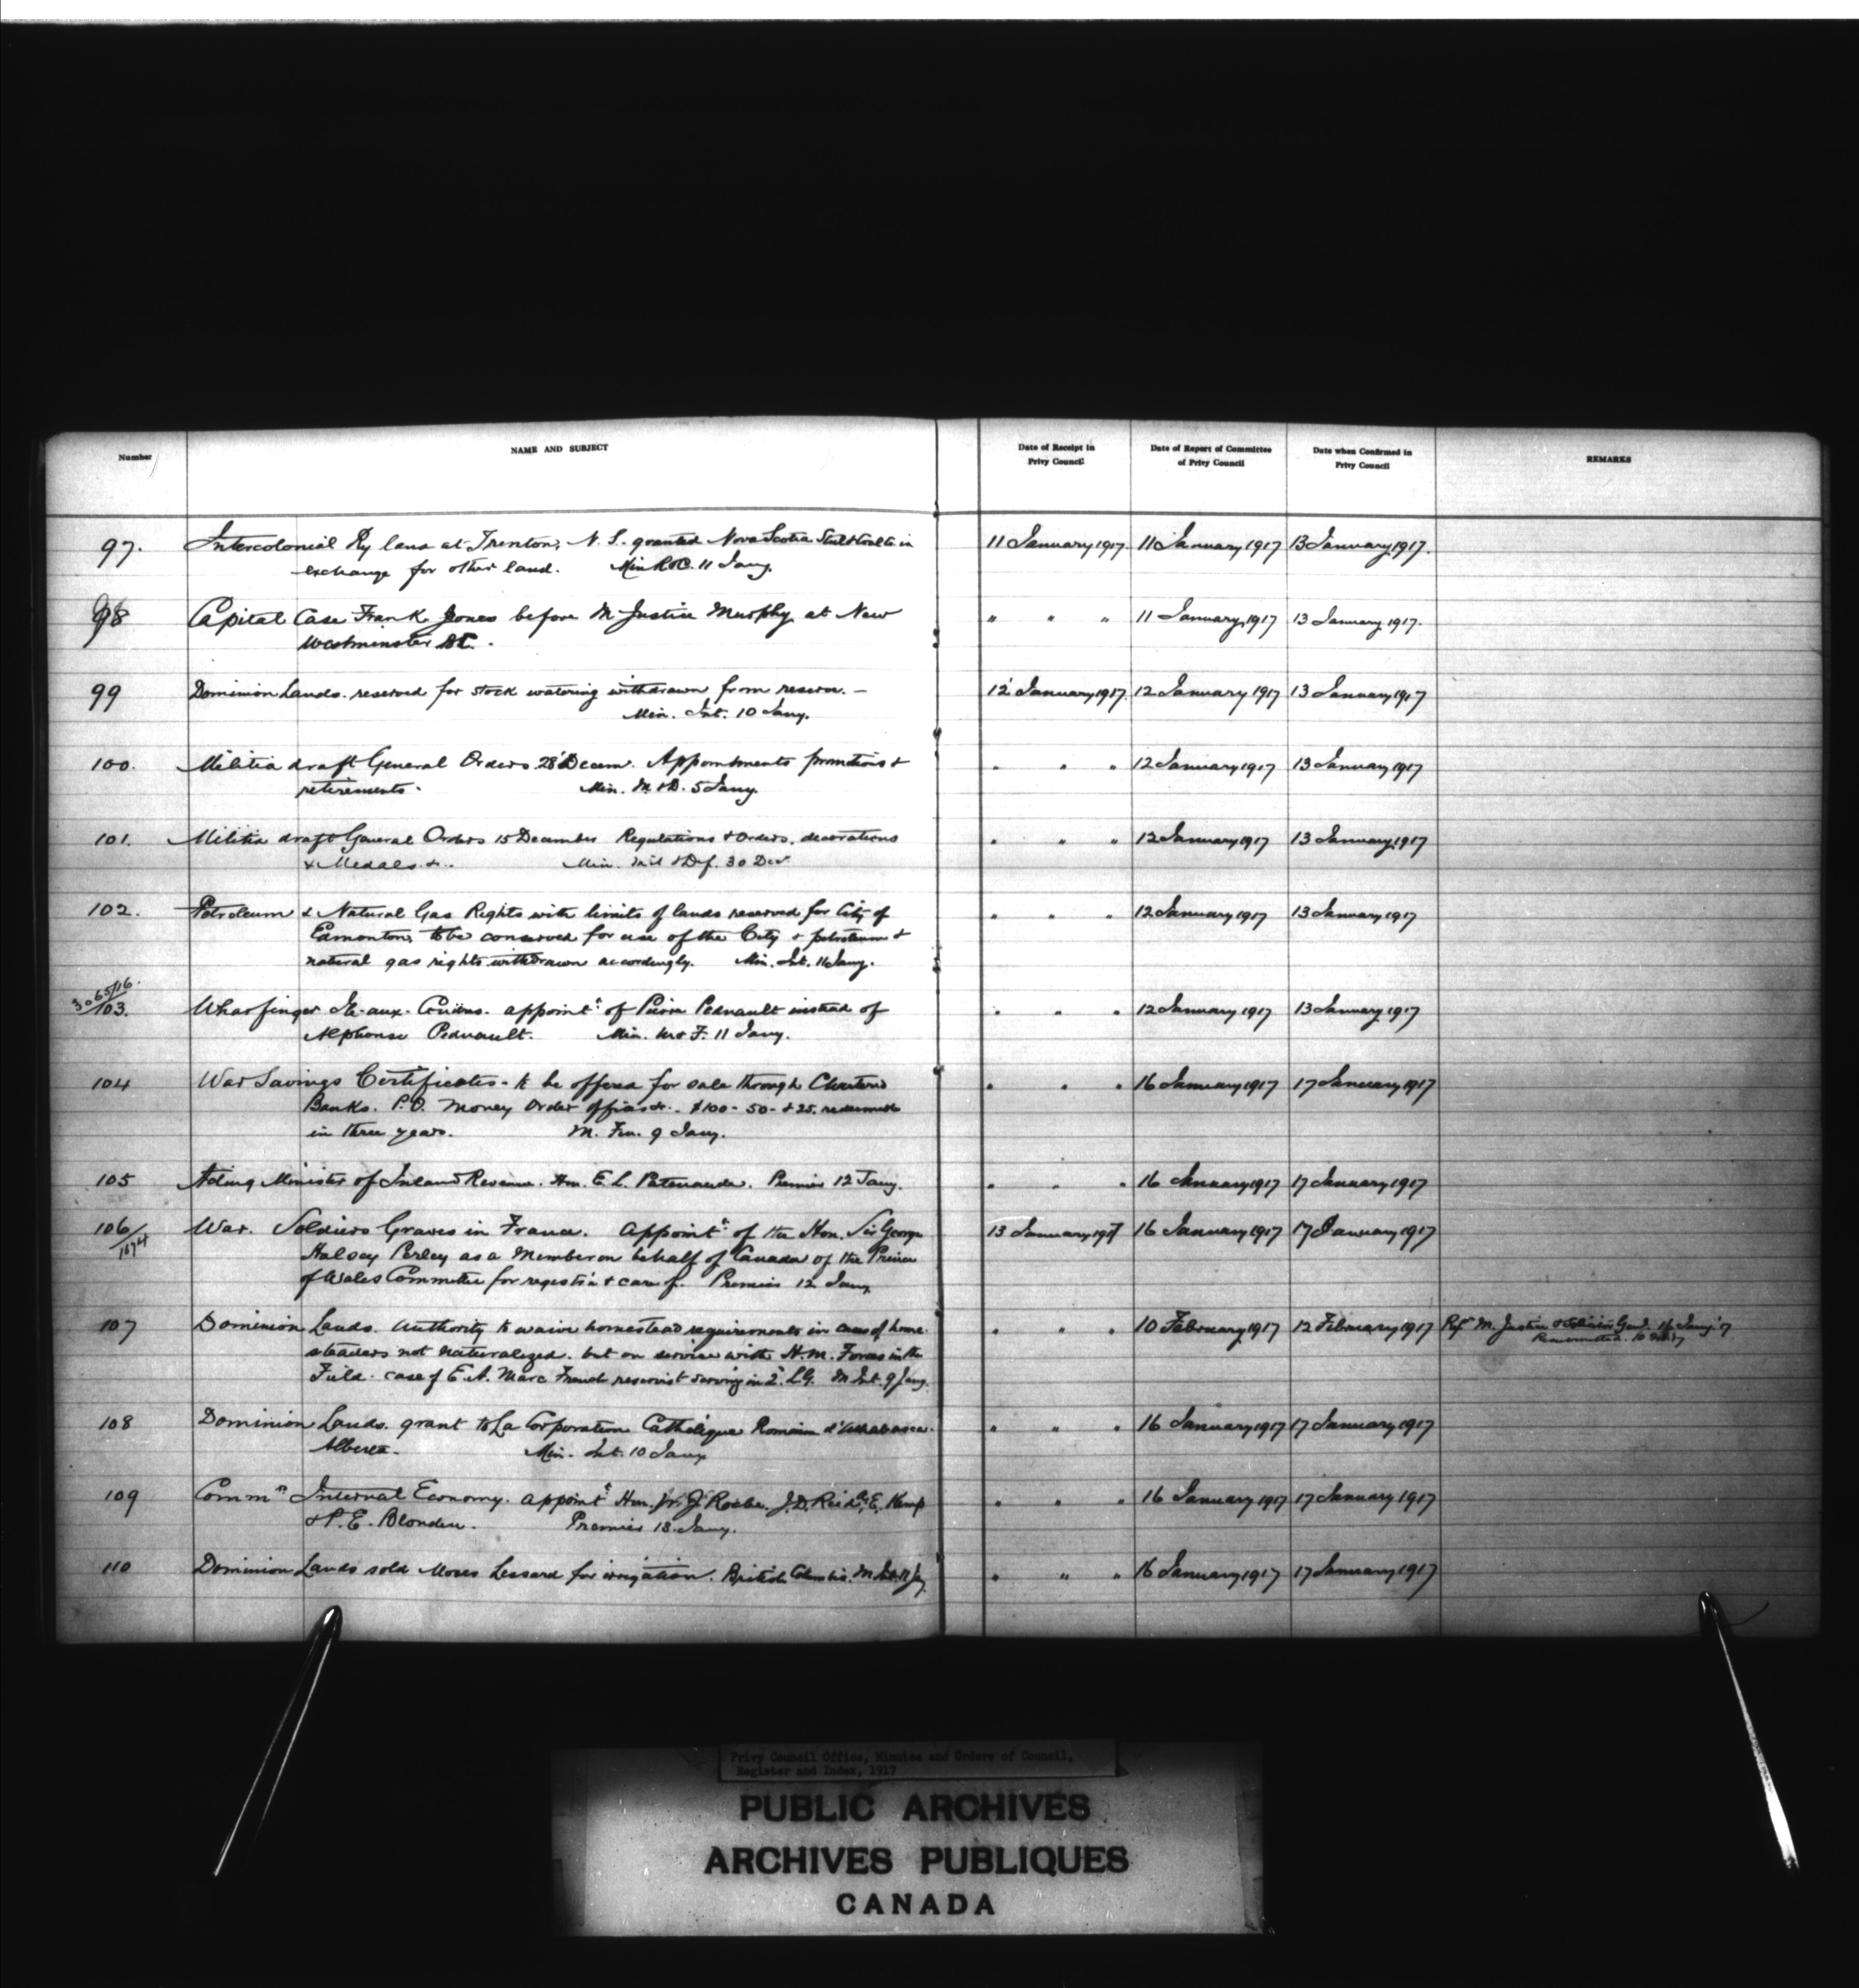 Number
NAME AND SUBJECT
Date of Receipt in
Privy Council
Date of Report of Committee
of Privy Council
Date when Confirmed in
Privy Council
REMARKS
97. Intercolonial Ry land at Trenton, N. S. granted Nova Scotia Steel & Coal Co in 11 January 1917. 11 January 1917 13 January 1917.
exchange for other land. Min R&C. 11 Jany.
98 Capital Case Frank Jones before Mr Justice Murphy at New " " " 11 January, 1917 13 January 1917.
Westminster BC.
99 Dominion Lands. reserved for stock watering withdrawn from reserve. — 12 January 1917. 12 January 1917 13 January 1917
Min. Int. 10 Jany.
100. Militia draft General Orders 28 Decem. Appointments promotions & " " " 12 January 1917 13 January 1917
retirements. Min. M. & D. 5 Jany.
101. Militia draft General Orders 15 December Regulations & Orders, decorations " " " 12 January 1917 13 January 1917
& Medals &.. Min. Mil & Def. 30 Dec.
102. Petroleum & Natural Gas Rights with limits of lands reserved for City of " " " 12 January 1917 13 January 1917
Edmonton, to be conserved for use of the City & petroleum &
natural gas rights withdrawn accordingly. Min. Int. 11 Jany.
3065/16.
103. Wharfinger Ile-aux-Coudres. appoint.t of Pierre Pednault instead of " " " 12 January 1917 13 January 1917
Alphonse Pednault. Min. M & F. 11 Jany.
104 War Savings Certificates - to be offered for sale through Chartered " " " 16 January 1917 17 January 1917
Banks. P.O. Money Order offices &.. $100 - 50 - & 25. redeemable
in three years. M. Fin. 9 Jany.
105 Acting Minister of Inland Revenue. Hon. E. L. Patenaude. Premier 12 Jany. " " " 16 January 1917 17 January 1917
106/ War. Soldiers Graves in France. Appoint.t of the Hon. Sir George 13 January 1917 16 January 1917 17 January 1917
1674 Halsey Perley as a Member on behalf of Canada of the Prince
of Wales Committee for registr'n & care of. Premier 12 Jany
107 Dominion Lands. Authority to waive homestead requirements in cases of home- " " " 10 February, 1917 12 February 1917 Ref M. Justice & Solicitor Genl. 16 Jany '17
steaders not naturalized. but on service with H.M. Forces in the
Field. case of E. A. Marc French reservist serving in 2. L.G. M Int. 9 Jany.
108 Dominion Lands. grant to La Corporation Catholique Romaine d'Athabasca. " " " 16 January 1917 17 January 1917
Alberta. Min. Int. 10 Jany
109 Comm.n Internal Economy. appoint.t Hon. W. J Roche. J. D. Reid, A. E. Kemp " " " 16 January 1917 17 January 1917
& P. E. Blondin. Premier 13 Jany.
110 Dominion Lands sold Moses Lessard for irrigation. British Columbia. M Int. 11 Jy. " " " 16 January 1917 17 January 1917
Privy Council Office, Minutes and Orders of Council,
Register and Index, 1917
PUBLIC ARCHIVES
ARCHIVES PUBLIQUES
CANADA